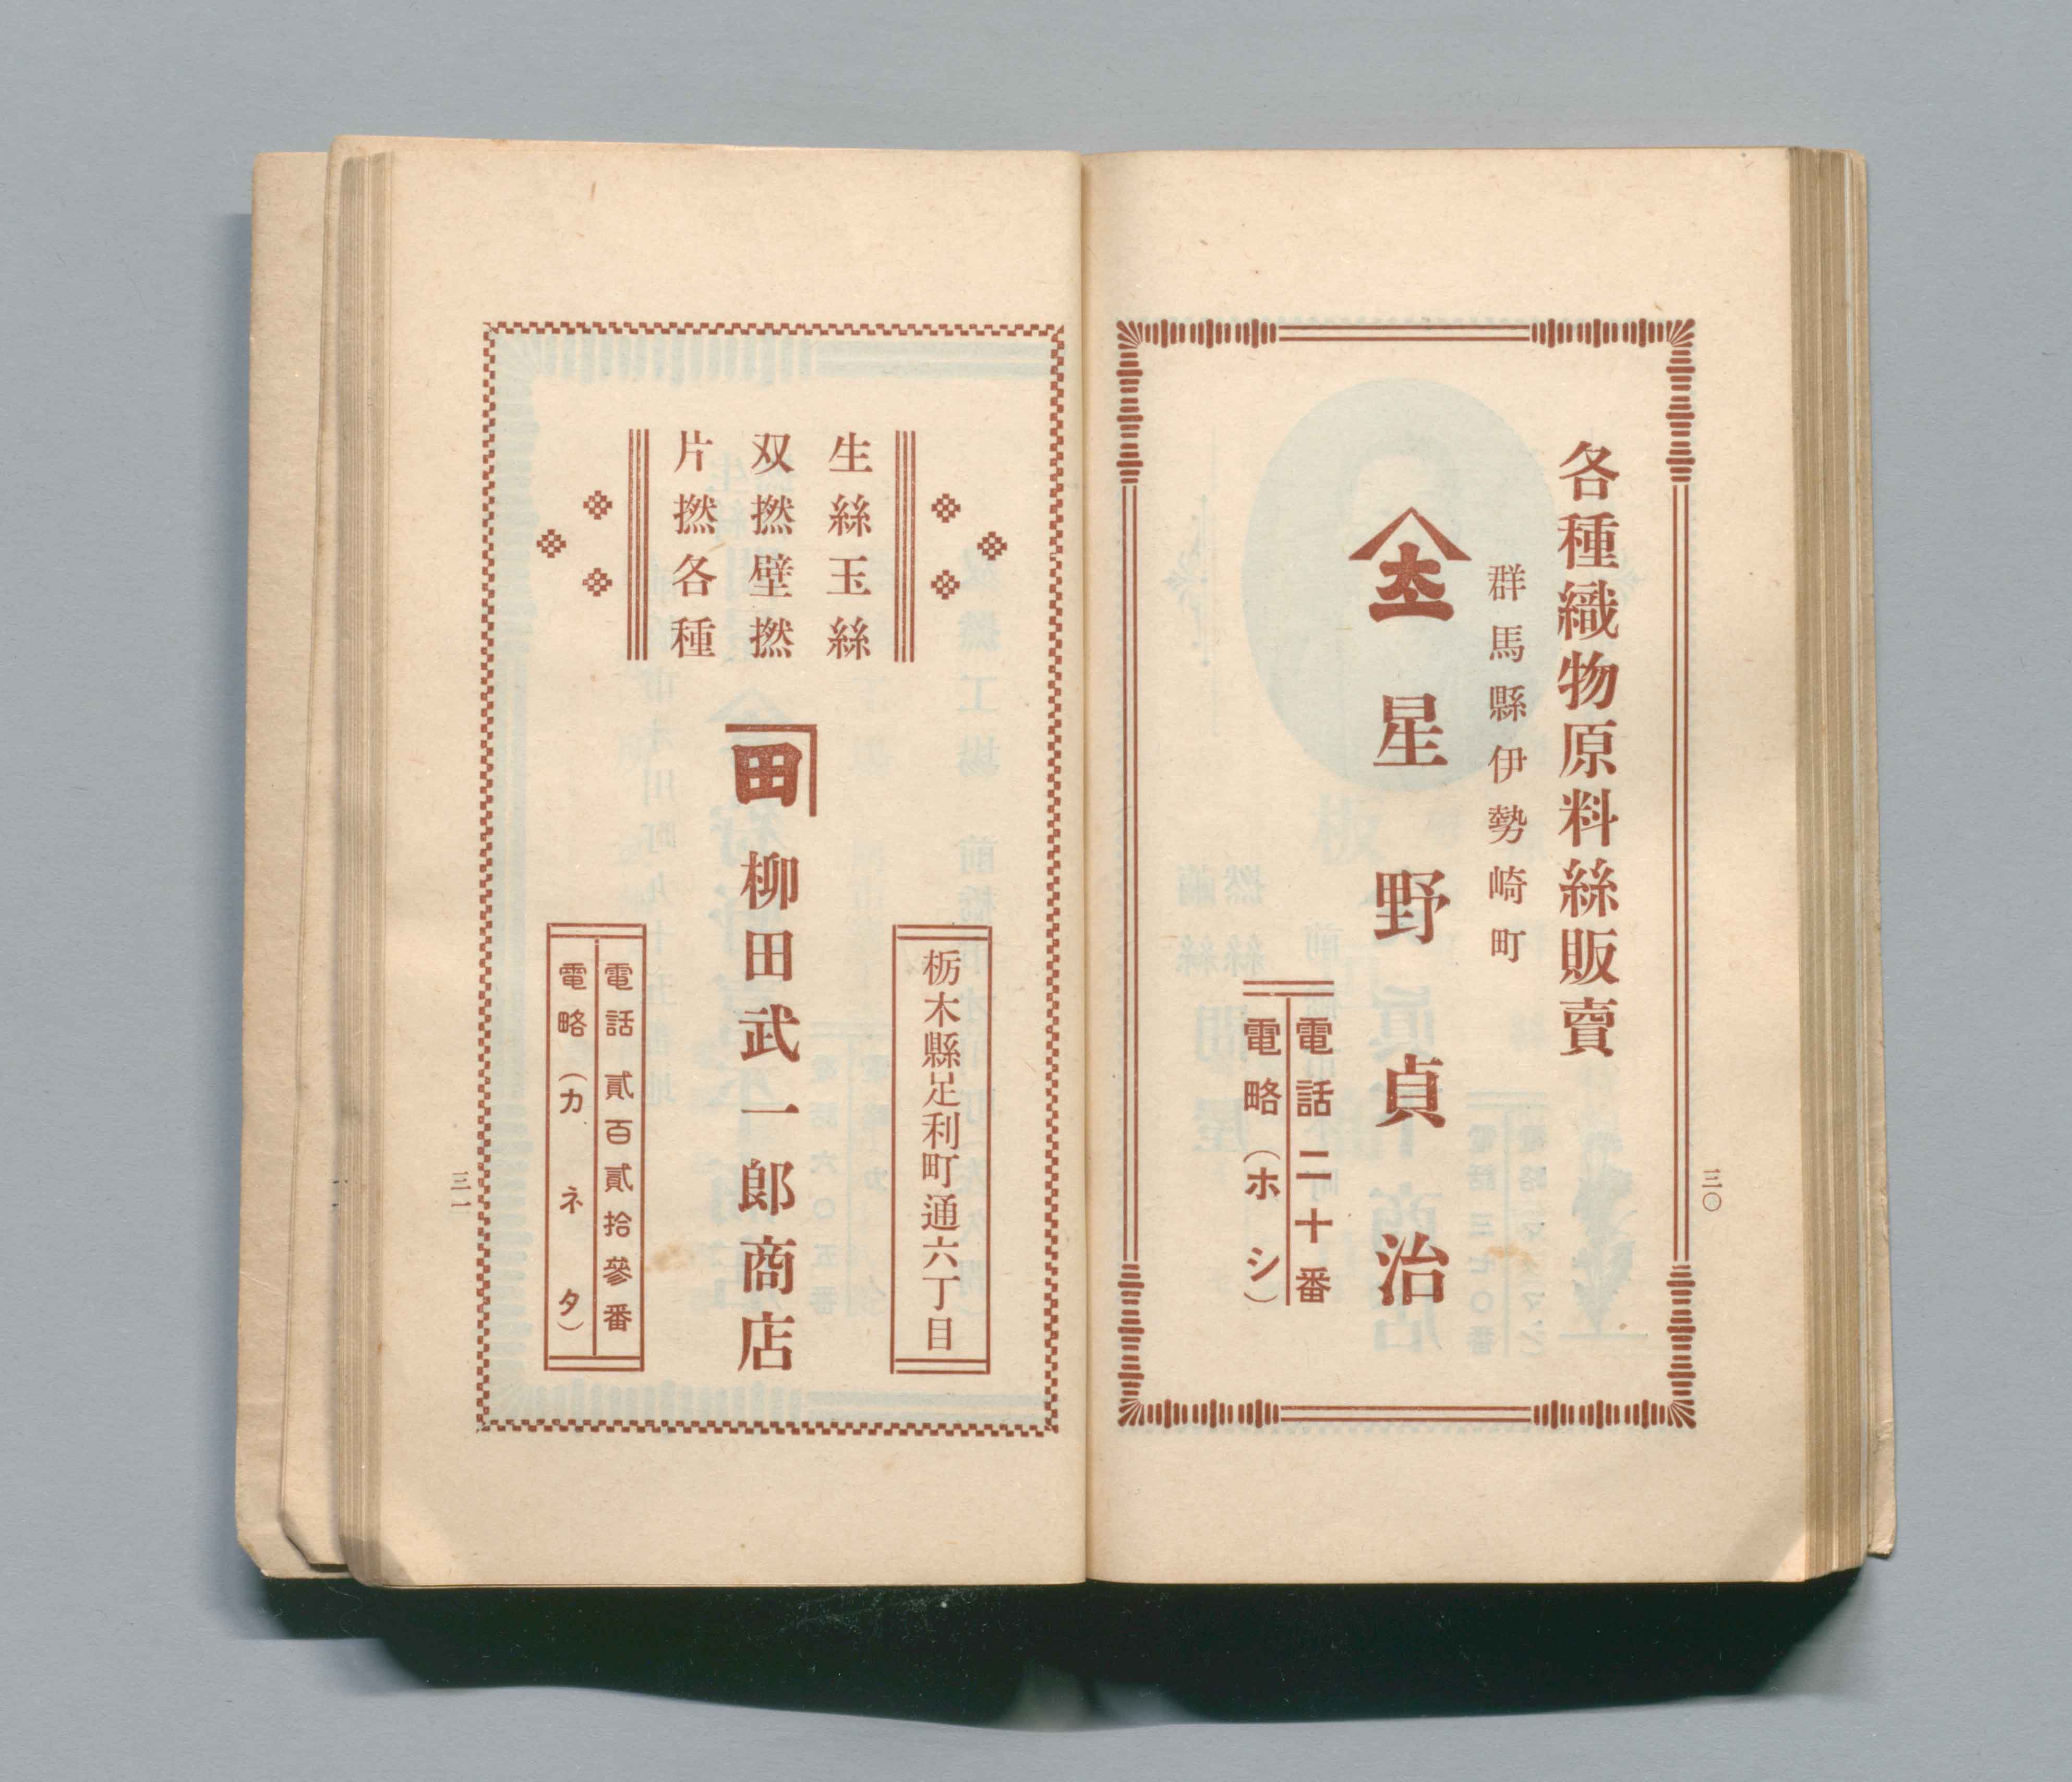 各種織物原料絲販賣
群馬縣伊勢崎町
星野貞治
電話二十番
電略(ホシ)
三〇
生絲玉絲
双撚壁撚
片撚各種
田
柳田武一郎商店
栃木縣足利町通六丁目
電話貳百貳拾參番
電略(カネタ)
三一